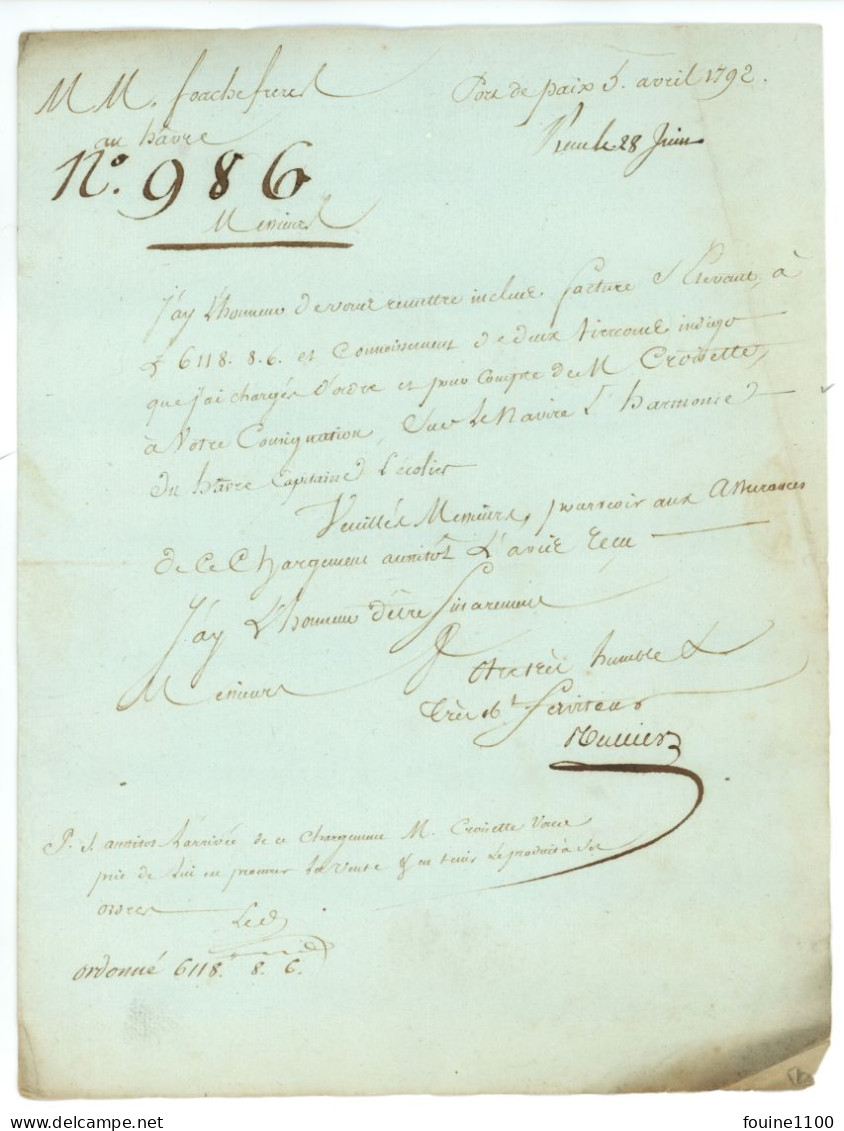 M M. foache freres
Port de paix 5. avril 1792.
au hâvre
Recu le 28 Juin
N.º 986
Messieurs
J'ay L'honneur de vous remettre incluse facture S'Elevant, à
₶ 6118. 8. 6. et Connoissement de deux tierceons indigo
que j'ai chargés d'ordre et pour Compte de M Croisette,
à Votre Consignation, Sur Le Navire L'harmonie
du hâvre Capitaine L'écolier
Veuillés Messieurs, pourvoir aux Assurances
de Ce Chargement aussitôt L'avis recu
J'ay L'honneur d'être Sincerement
Messieurs
Votre très humble &
très ob.t Serviteur
P. S. aussitot L'arrivée de ce Chargement M. Croisette Vous
prie de lui en procurer la Vente & en tenir Le produit à Ses
ordres
ordonné 6118. 8. 6.
fouine1100